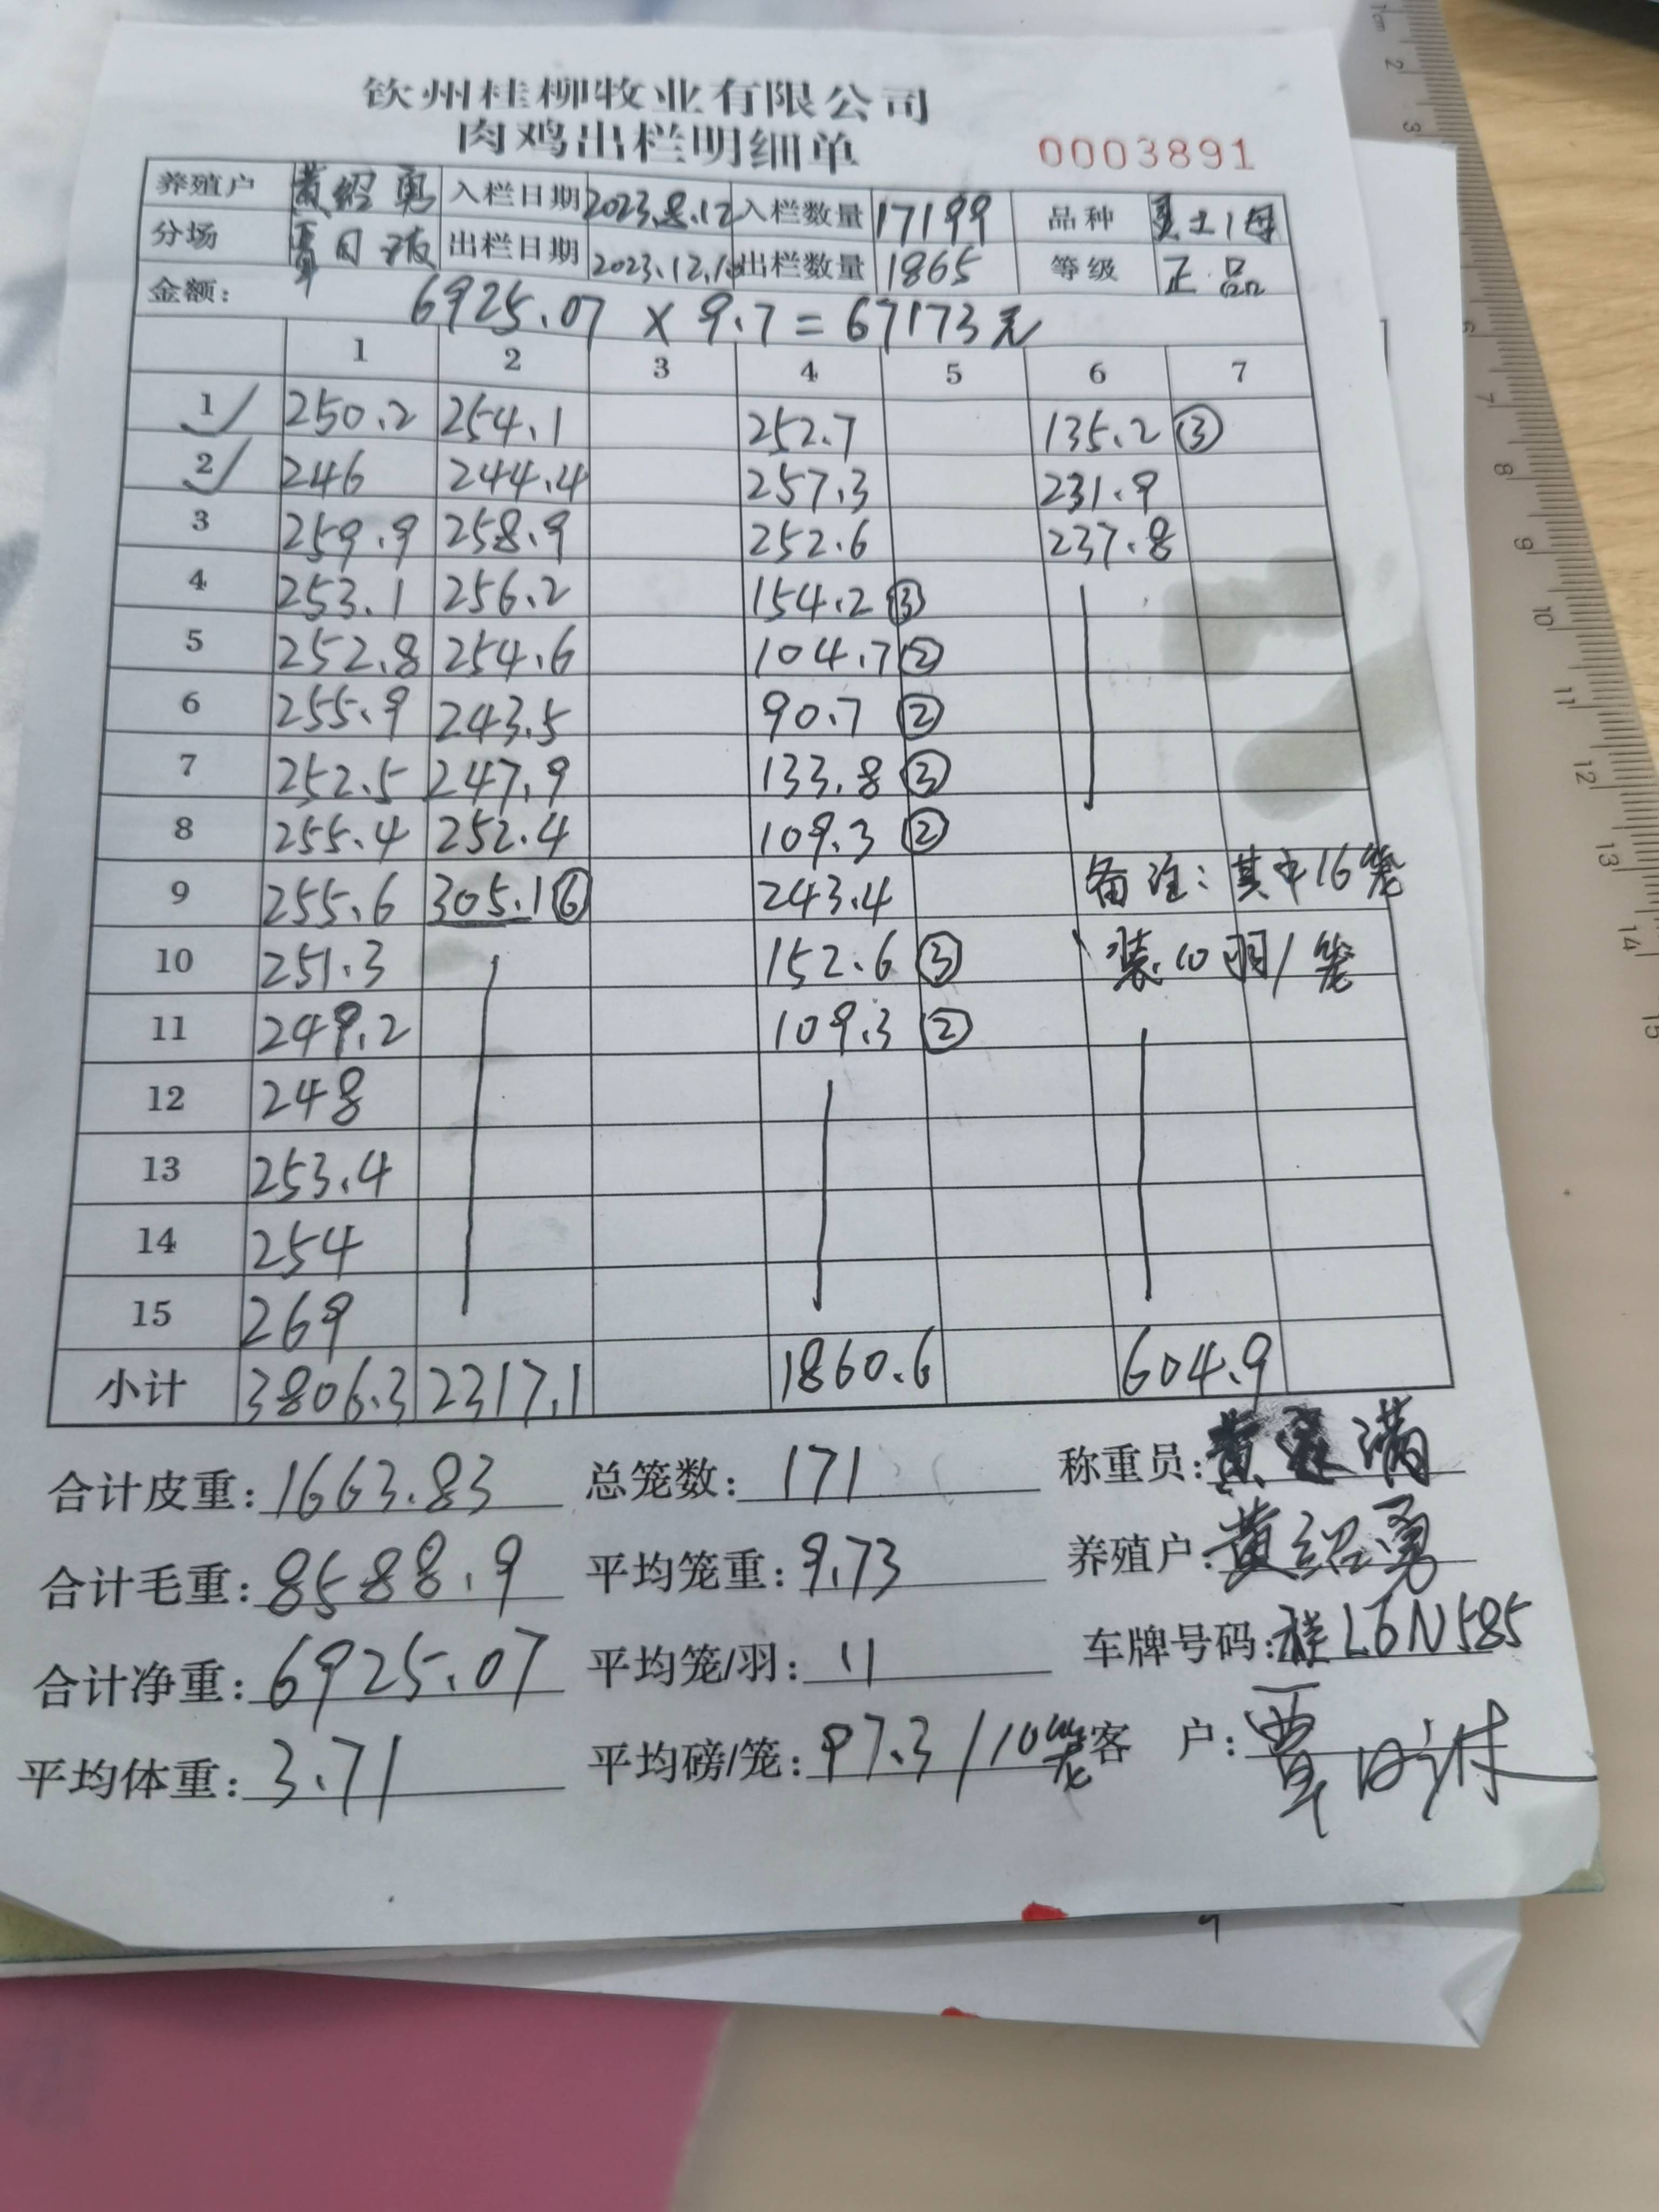 钦州桂柳牧业有限公司
肉鸡出栏明细单 0003891
养殖户 黄绍勇 入栏日期 2023.8.12 入栏数量 17199 品种
分场 出栏日期 2023.12.1 出栏数量 1865 等级 正品
金额: 6925.07 × 9.7 = 67173元
1 2 3 4 5 6 7
1 250.2 254.1 252.7 135.2 ③
2 246 244.4 257.3 231.9
3 259.9 258.9 252.6 237.8
4 253.1 256.2 154.2 ③
5 252.8 254.6 104.7 ②
6 255.9 243.5 90.7 ②
7 252.5 247.9 133.8 ③
8 255.4 252.4 109.3 ②
9 255.6 305.1 ⑥ 243.4 备注: 其中16笼
10 251.3 152.6 ③ 装10羽/笼
11 249.2 109.3 ②
12 248
13 253.4
14 254
15 269
小计 3806.3 2317.1 1860.6 604.9
合计皮重: 1663.83 总笼数: 171 称重员: 黄 满
合计毛重: 8588.9 平均笼重: 9.73 养殖户: 黄绍勇
合计净重: 6925.07 平均笼/羽: 11 车牌号码: 桂L6N585
平均体重: 3.71 平均磅/笼: 97.3/10笼 客户: 覃